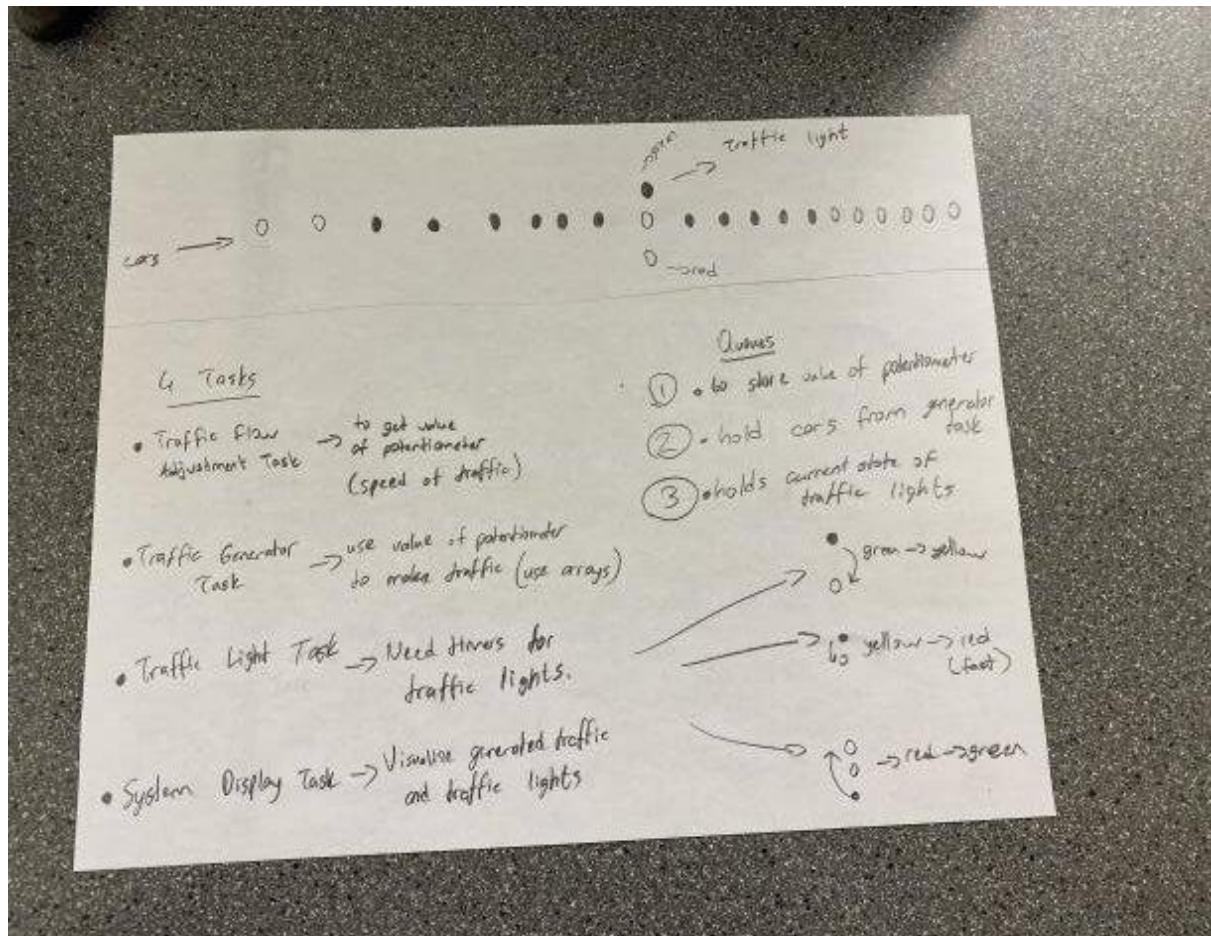 green
→ Traffic light
cars →
→ red
4 Tasks
• Traffic Flow
Adjustment Task
→ to get value
of potentiometer
(speed of traffic)
• Traffic Generator
Task
→ use value of potentiometer
to traffic (use arrays)
• Traffic Light Task → Need timers for
traffic lights.
• System Display Task → Visualise generated traffic
and traffic lights
Queues
① • to store value of potentiometer
② • hold cars from generator
task
③ • holds current state of
traffic lights
green → yellow
yellow → red
(fast)
→ red → green